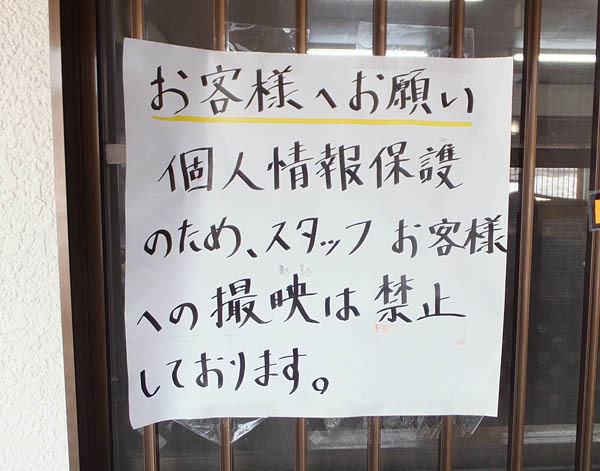 お客様へお願い
個人情報保護
のため、スタッフ お客様
への撮映は禁止
しております。